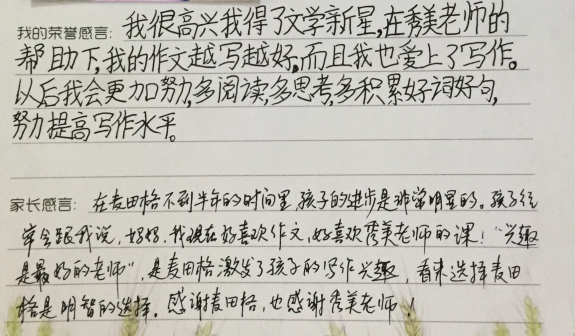 我的荣誉感言: 我很高兴我得了文学新星,在秀美老师的
帮助下,我的作文越写越好,而且我也爱上了写作。
以后我会更加努力,多阅读,多思考,多积累好词好句,
努力提高写作水平。
家长感言: 在麦田格不到半年的时间里,孩子的进步是非常明显的。孩子经
常会跟我说,妈妈,我现在好喜欢作文,好喜欢秀美老师的课!“兴趣
是最好的老师”,是麦田格激发了孩子的写作兴趣,看来选择麦田
格是明智的选择。感谢麦田格,也感谢秀美老师!